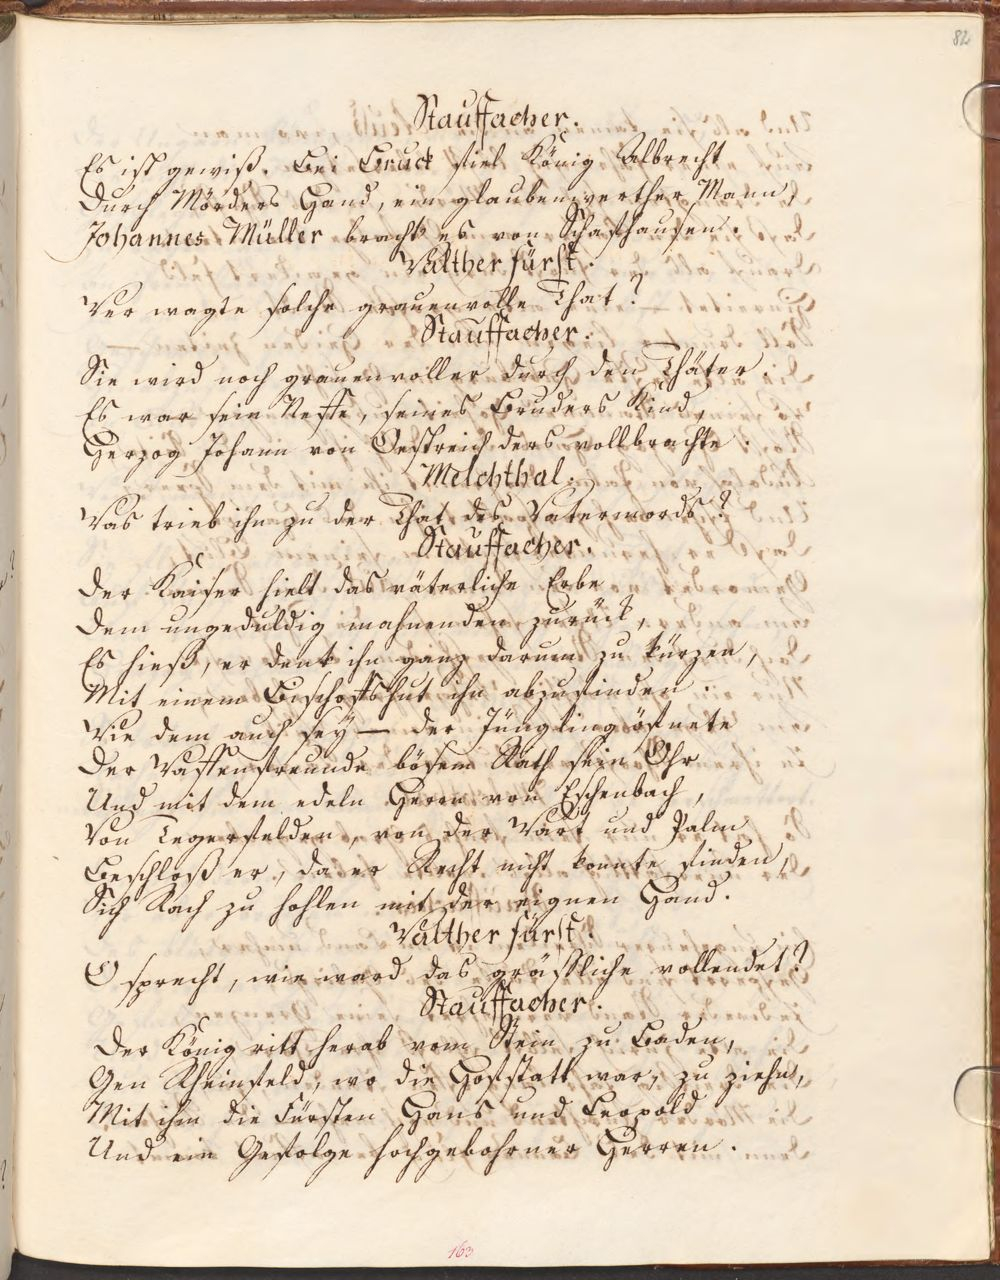 82
Stauffacher.
Es ist gewiß. Bei Bruck fiel König Albrecht
Durch Mörders Hand, ein glaubenswerther Mann,
Johannes Müller bracht es von Schafhausen.
Walther Fürst.
Wer wagte solche grauenvolle That?
Stauffacher.
Sie wird noch grauenvoller durch den Thäter.
Es war sein Neffe, seines Bruders Kind,
Herzog Johann von Oestreich ders vollbrachte.
Melchthal.
Was trieb ihn zu der That des Vatermords?
Stauffacher.
Der Kaiser hielt das väterliche Erbe
Dem ungeduldig mahnenden zurück,
Es hieß, er denk ihn ganz darum zu kürzen,
Mit einem Bischoffshut ihn abzufinden.
Wie dem auch sey — der Jüngling öfnete
Der Waffenfreunde bösem Rath sein Ohr
Und mit dem edeln Herrn von Eschenbach,
Von Tegerfelden, von der Wart und Palm
Beschloß er, da er Recht nicht konnte finden,
Sich Rach zu hohlen mit der eignen Hand.
Walther Fürst.
O sprecht, wie ward das gräßliche vollendet?
Stauffacher.
Der König ritt herab vom Stein zu Baden,
Gen Rheinfeld, wo die Hofstatt war, zu ziehn,
Mit ihm die Fürsten Hans und Leopold
Und ein Gefolge hochgebohrner Herren.
163